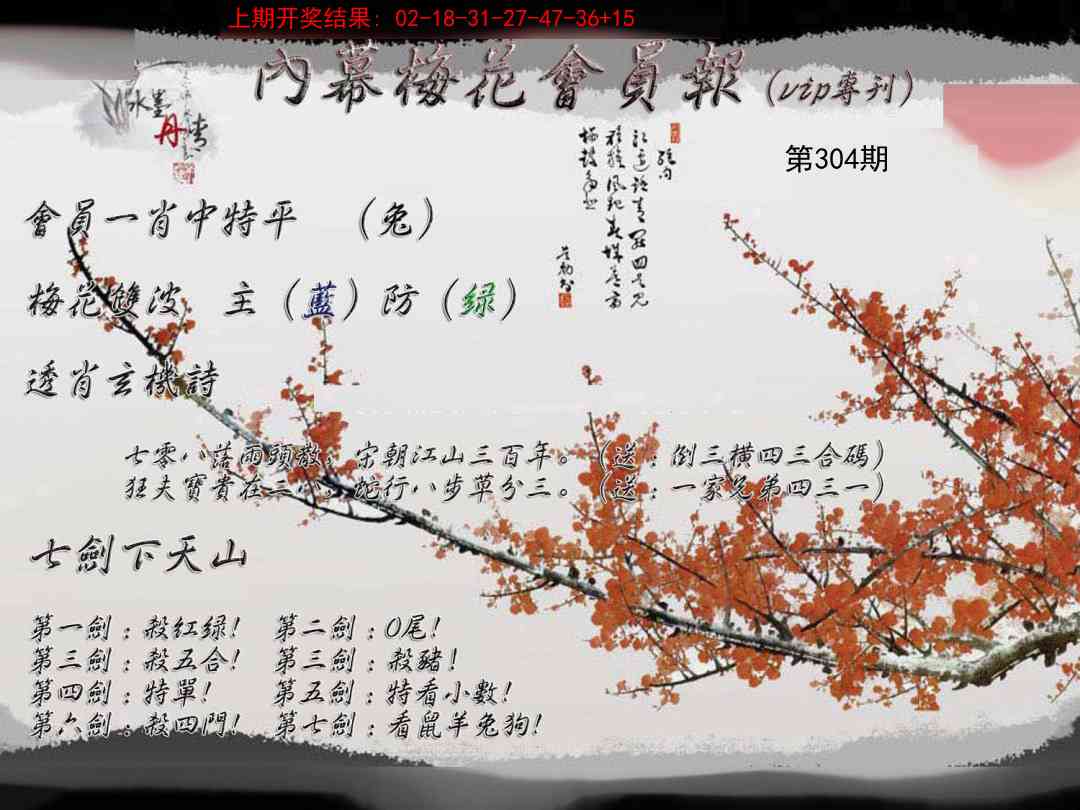 上期开奖结果: 02-18-31-27-47-36+15
內幕梅花會員報(vip專刊)
水墨
丹情
第304期
會員一肖中特平 (兔)
梅花雙波 主(藍)防(绿)
透肖玄機詩
七零八落雨頭散，宋朝江山三百年。(送：倒三橫四三合碼)
狂夫寶貴在三小，蛇行八步草分三。(送：一家兄弟四三一)
七劍下天山
第一劍：殺紅绿! 第二劍：0尾!
第三劍：殺五合! 第三劍：殺豬!
第四劍：特單! 第五劍：特看小數!
第六劍：殺四門! 第七劍：看鼠羊兔狗!